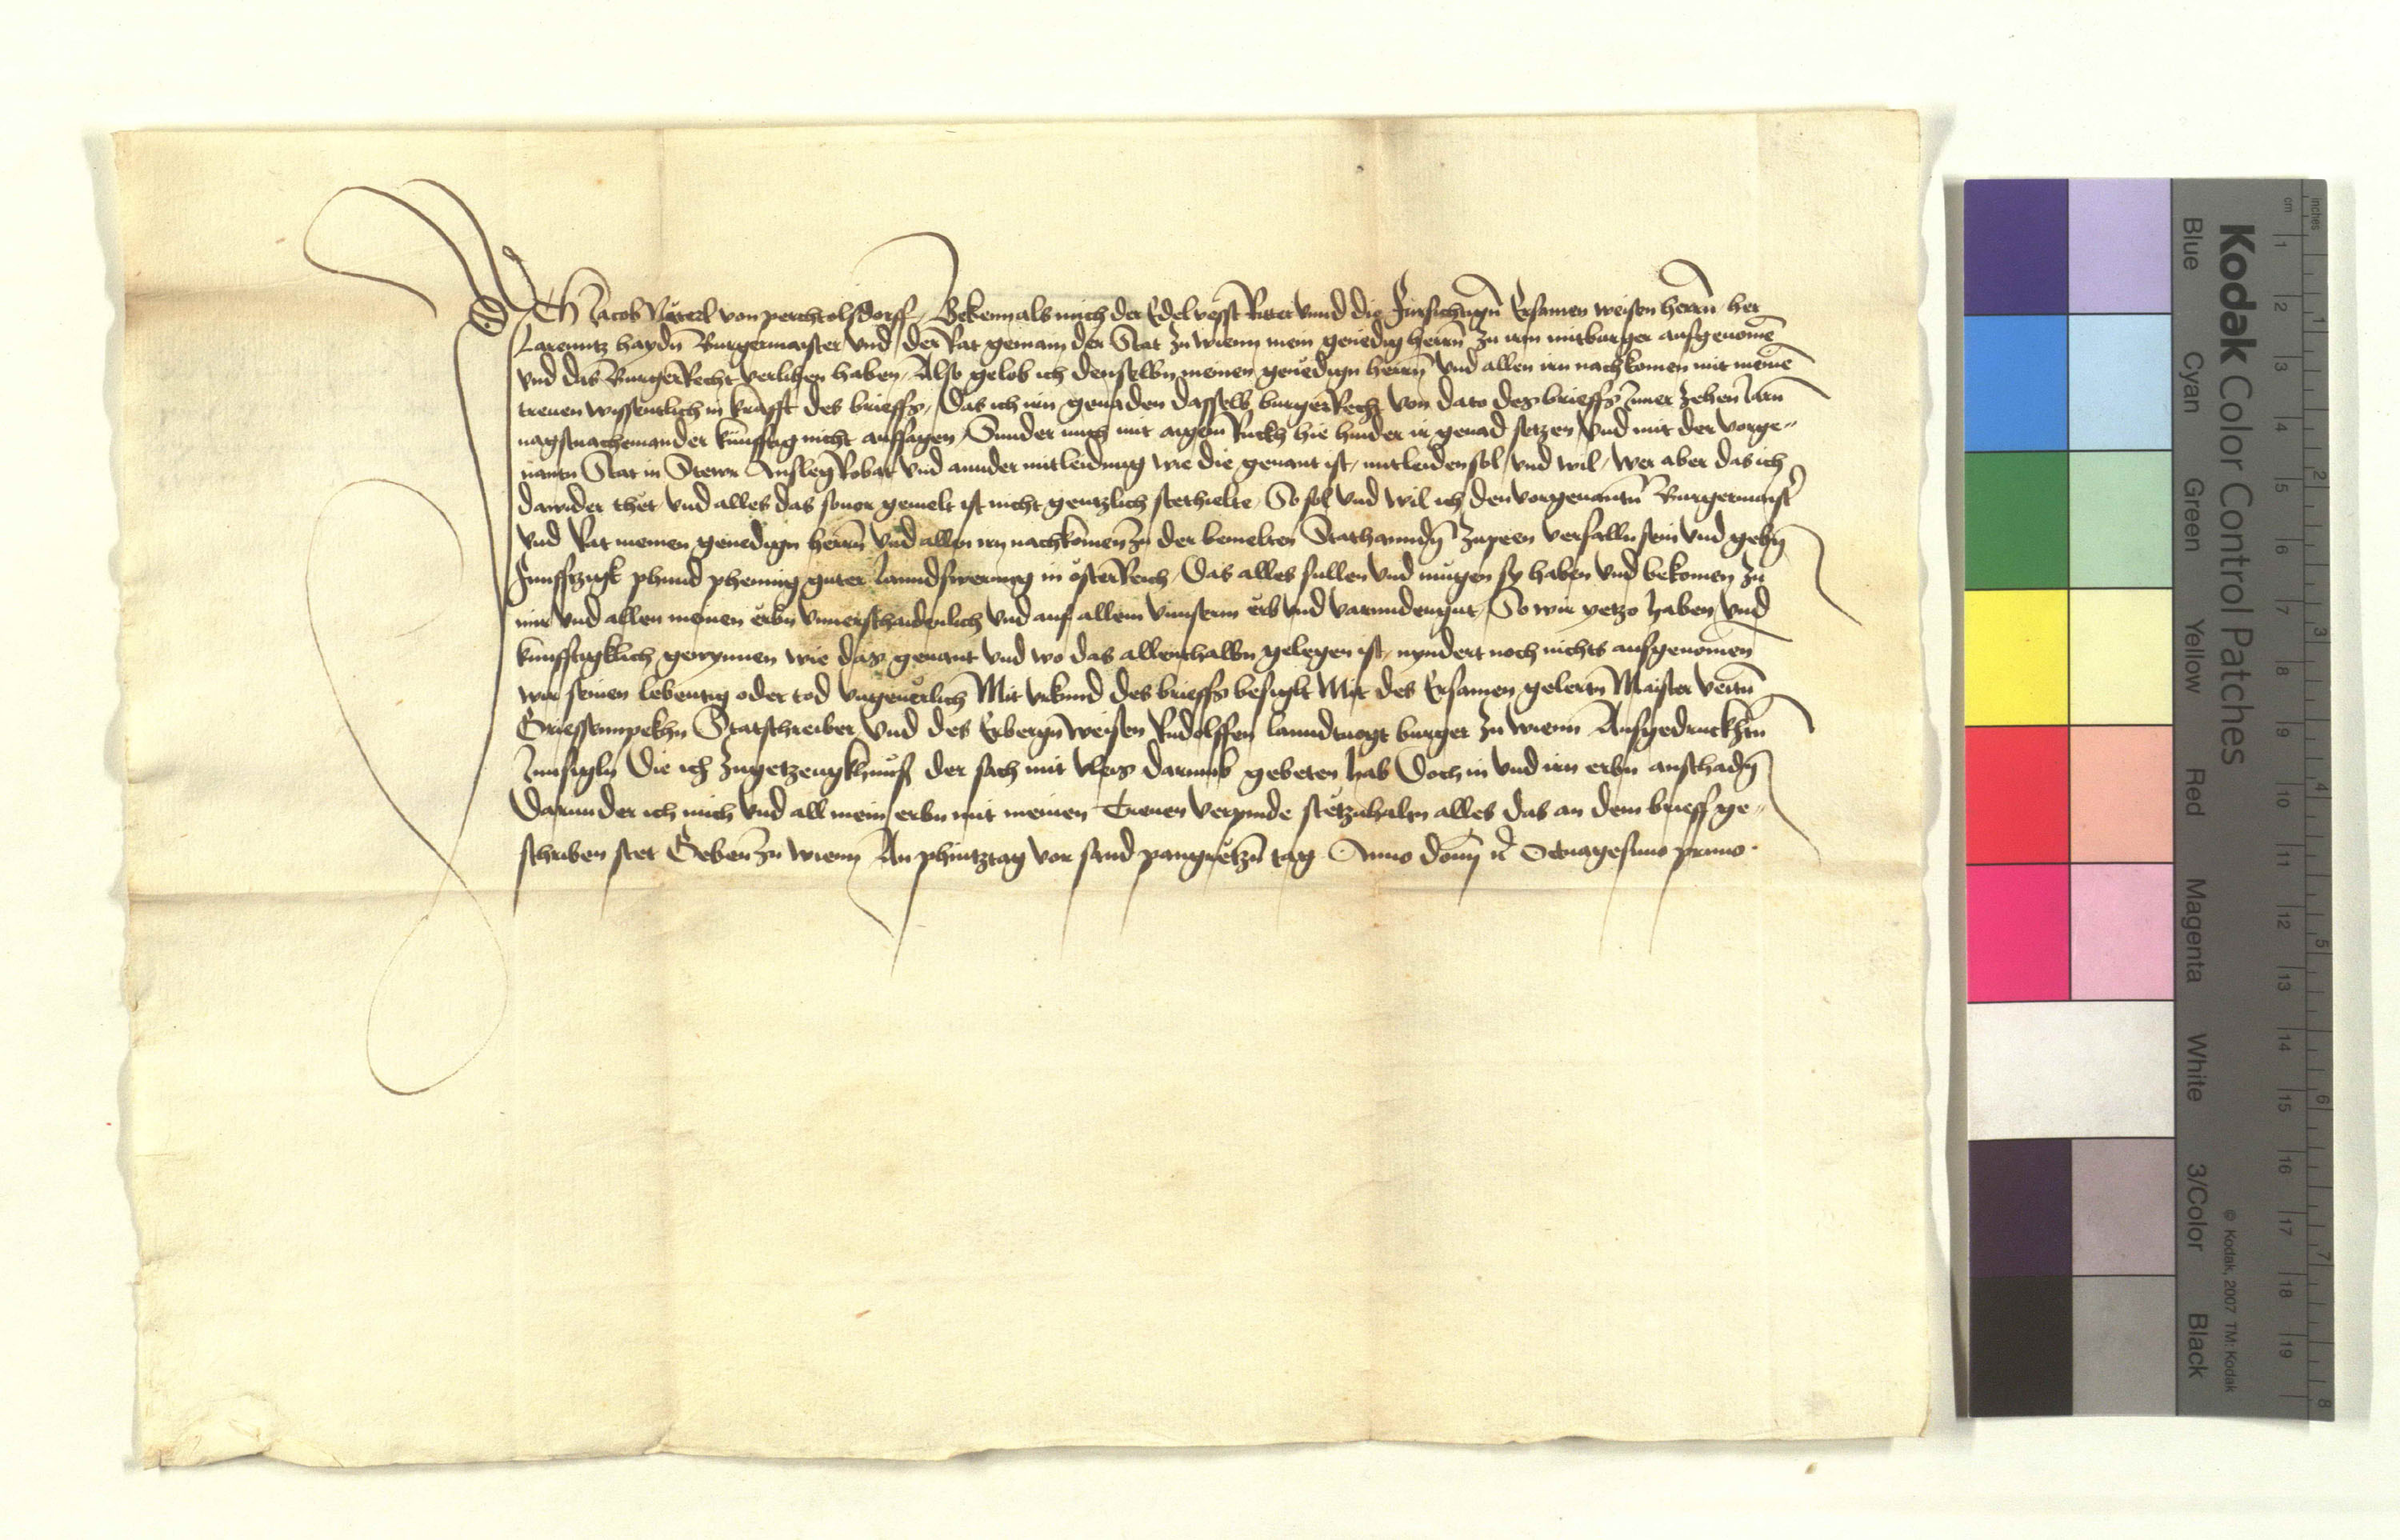 Ich Jacob Nüterl von perchtolsdorff Bekenn als mich der Edel vesst Ritter vnnd die Fürsichtign̄ Ersamen weisen herrn̄ her
Larenntz haydn̄ Burgermaister vnd der Rat gemain der Stat zu wienn mein genedig herrn̄ zu irm mitburger aufgenomē
vnd das BurgerRecht verlihen haben, Also gelob ich denselbn meinen genedign herrn̄ vnd allen irn nachkomen mit meinē
treuen wissentlich in krafft des brieffs, Das ich irn genaden dasselb burgerRecht von dato des brieffs Inner zehen Jarn
nagstnacheinander künfftig nicht aufsagen, Sunder mich mit aigem Ruckh hie hinder ir genad setzen vnd mit der vorge-
nantn Stat in Stewr Ansleg Robat vnd annder mitleidung wie die genant ist, mitleiden sol vnd wil, Wer aber das ich
dawider thet vnd alles das souor gemelt ist nicht genntzlich stethielte, So sol vnd wil ich den vorgenantn̄ Burgermaist̄
vnd Rat meinen genedign herrn̄ vnd allen irn nachkomen zu der bemelten Stathanndn̄ zupeen verfalln sein vnd gebn̄
Funfftzigk phund phening guter lanndswerung in österReich, Das alles sullen vnd mügen sy haben vnd bekomen zu
mir vnd allen meinen erbn vnuerschaidenlich vnd auf allem vnnserm erb vnd varunndengut, So wir yetzo haben vnd
künfftigklich gewynnen wie das genant vnd wo das allenthalbn gelegen ist, nyndert noch nichts aufgenomen
wir seinen lebentig oder tod vngeuerlich Mit vrkund des brieffs besiglt Mit des Ersamen gelertn̄ Maister veitn̄
Griessenpekhn Statschreiber vnd des Erbergn̄ weisen Rudolffen lanndtuogt burger zu wienn Aufgedruckhtn̄
Innsigln Die ich zugetzeugkhnüss der sach mit vleis darumb gebeten hab Doch in vnd irn erbn anschadn̄
Darunder ich mich vnd all mein erbn mit meinen Treuen verpinde stetzuhaltn alles das an dem brieff ge-
schriben stet Geben zu wienn An phintztag vor sand pangretzn̄ tag Anno domī ꝛc̄ Octuagesimo primo.
Kodak Color Control Patches
Blue Cyan Green Yellow Red Magenta White 3/Color Black
© Kodak, 2007 TM: Kodak
inches 1 2 3 4 5 6 7 8
cm 1 2 3 4 5 6 7 8 9 10 11 12 13 14 15 16 17 18 19